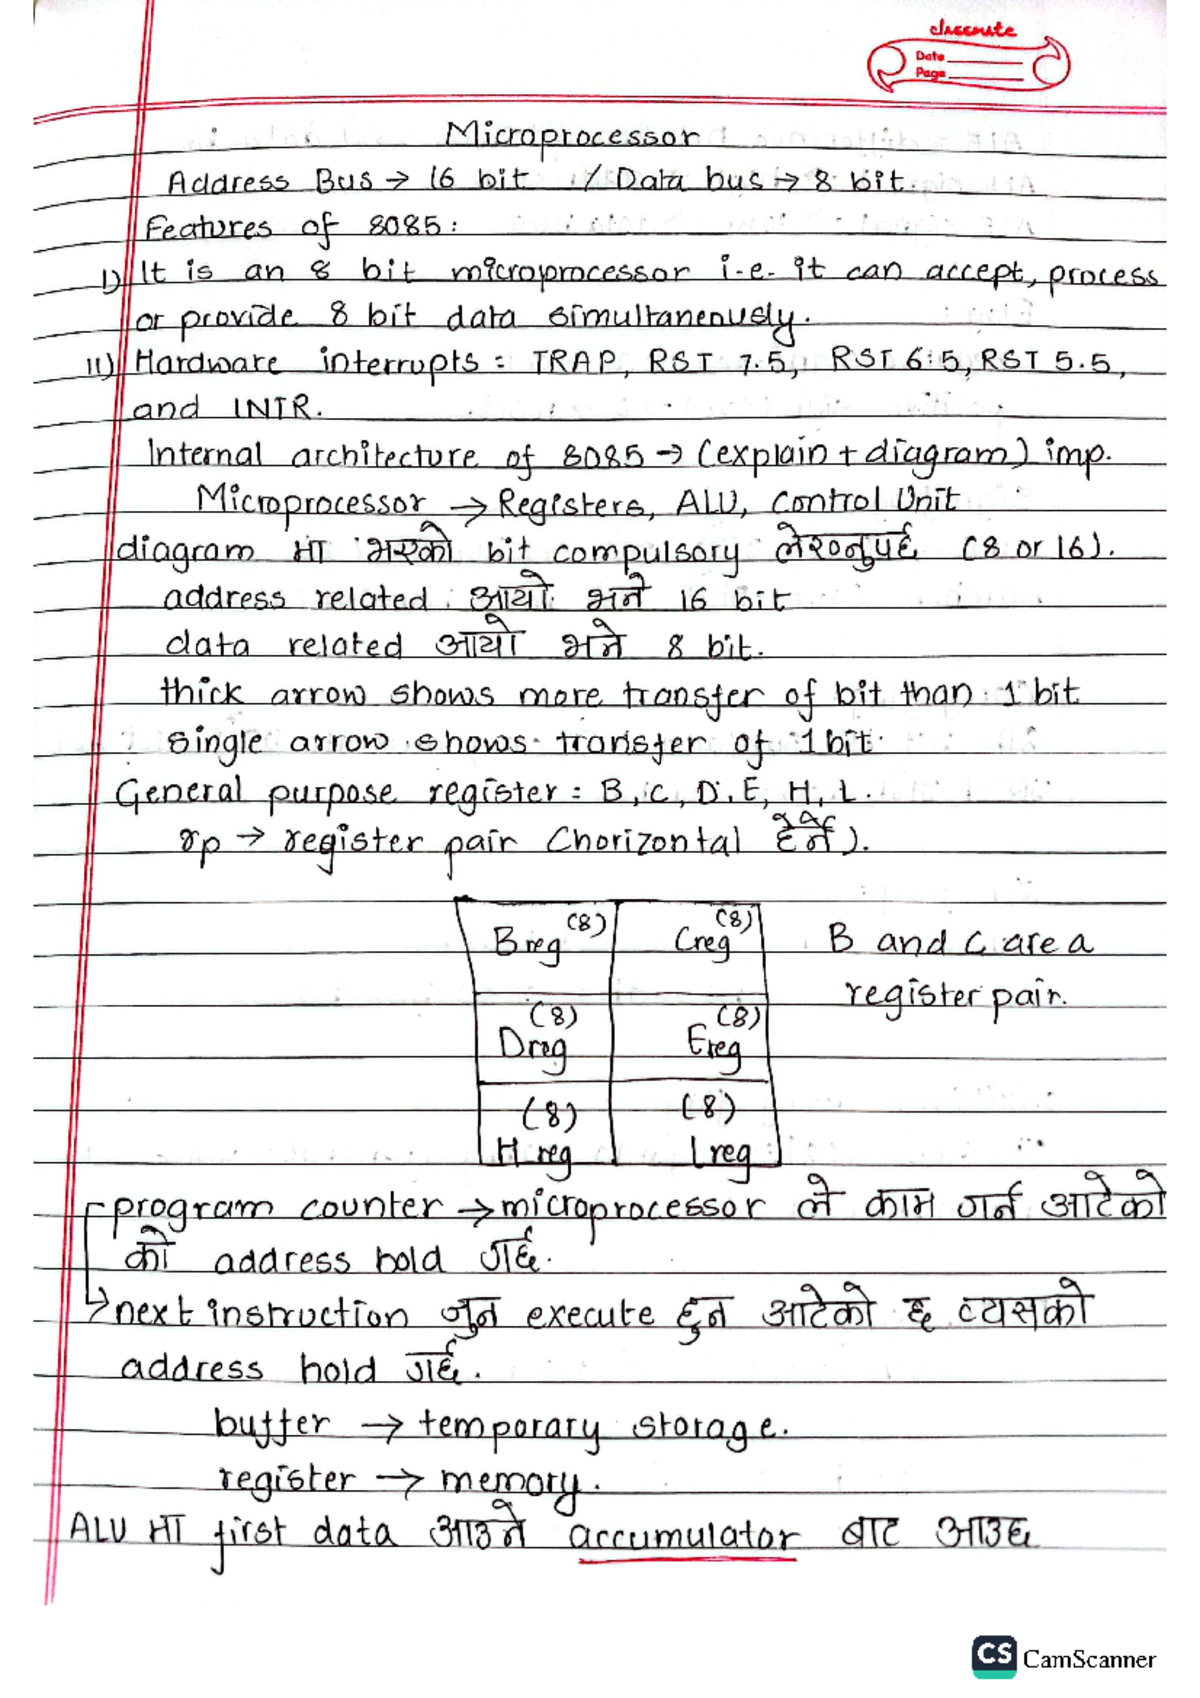 classmate
Date
Page
Microprocessor
Address Bus → 16 bit / Data bus → 8 bit.
Features of 8085:
I) It is an 8 bit microprocessor i.e. it can accept, process
or provide 8 bit data simultaneously.
II) Hardware interrupts : TRAP, RST 7.5, RST 6.5, RST 5.5,
and INTR.
Internal architecture of 8085 → (explain + diagram) imp.
Microprocessor → Registers, ALU, Control Unit
diagram मा भएको bit compulsory लेख्नुपर्छ (8 or 16).
address related आयो भने 16 bit
data related आयो भने 8 bit.
thick arrow shows more transfer of bit than 1 bit
single arrow shows transfer of 1 bit.
General purpose register : B, C, D, E, H, L.
rp → register pair (horizontal हेर्ने).
B reg (8) C reg (8) B and C are a
register pair.
(8) (8)
D reg E reg
(8) (8)
H reg L reg
program counter → microprocessor ले काम गर्न आटेको
को address hold गर्छ.
→ next instruction जुन execute हुन आटेको छ त्यसको
address hold गर्छ.
buffer → temporary storage.
register → memory.
ALU मा first data आउने accumulator बाट आउछ
CS CamScanner